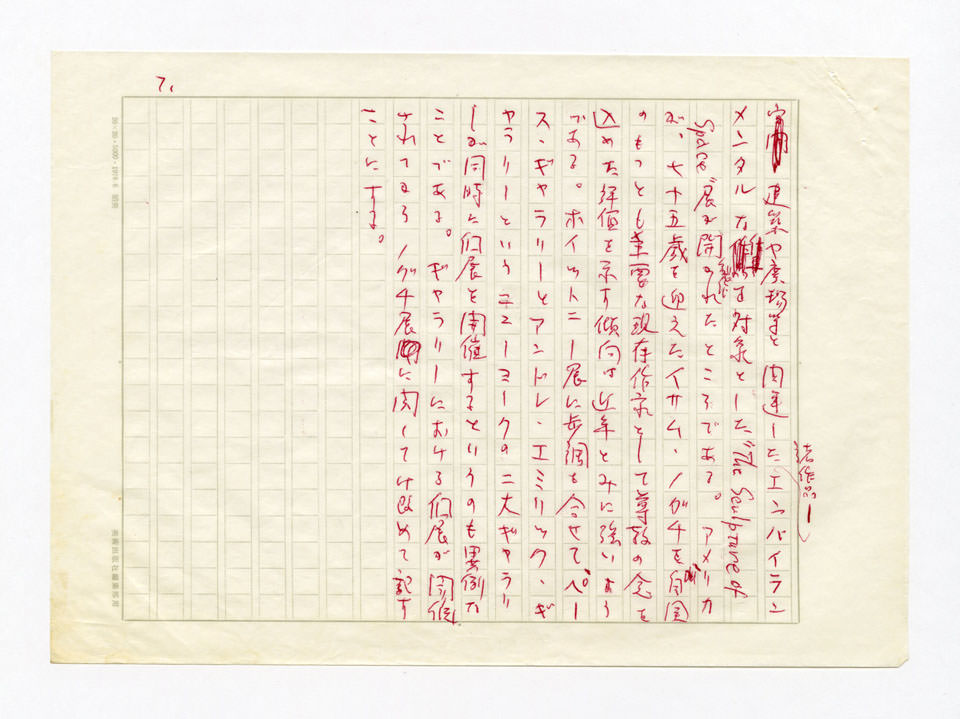 7.
建築や広場等と関連したエンバイラン
メンタルな諸作品を対象とした"The Sculpture of
Space"展が開かれたところである。アメリカ
が、七十五歳を迎えたイサム・ノグチを自国
のもっとも重要な現存作家として尊敬の念を
込めた評価を示す傾向は近年とみに強いよう
である。ホイットニー展に歩調を合せてペー
ス・ギャラリーとアンドレ・エミリック・ギ
ャラリーというニューヨークの二大ギャラリ
ーが同時に個展を開催するというのも異例な
ことである。ギャラリーにおける個展が開催
されてるノグチ展に関しては改めて記す
ことにする。
20×20=1000・1979.6